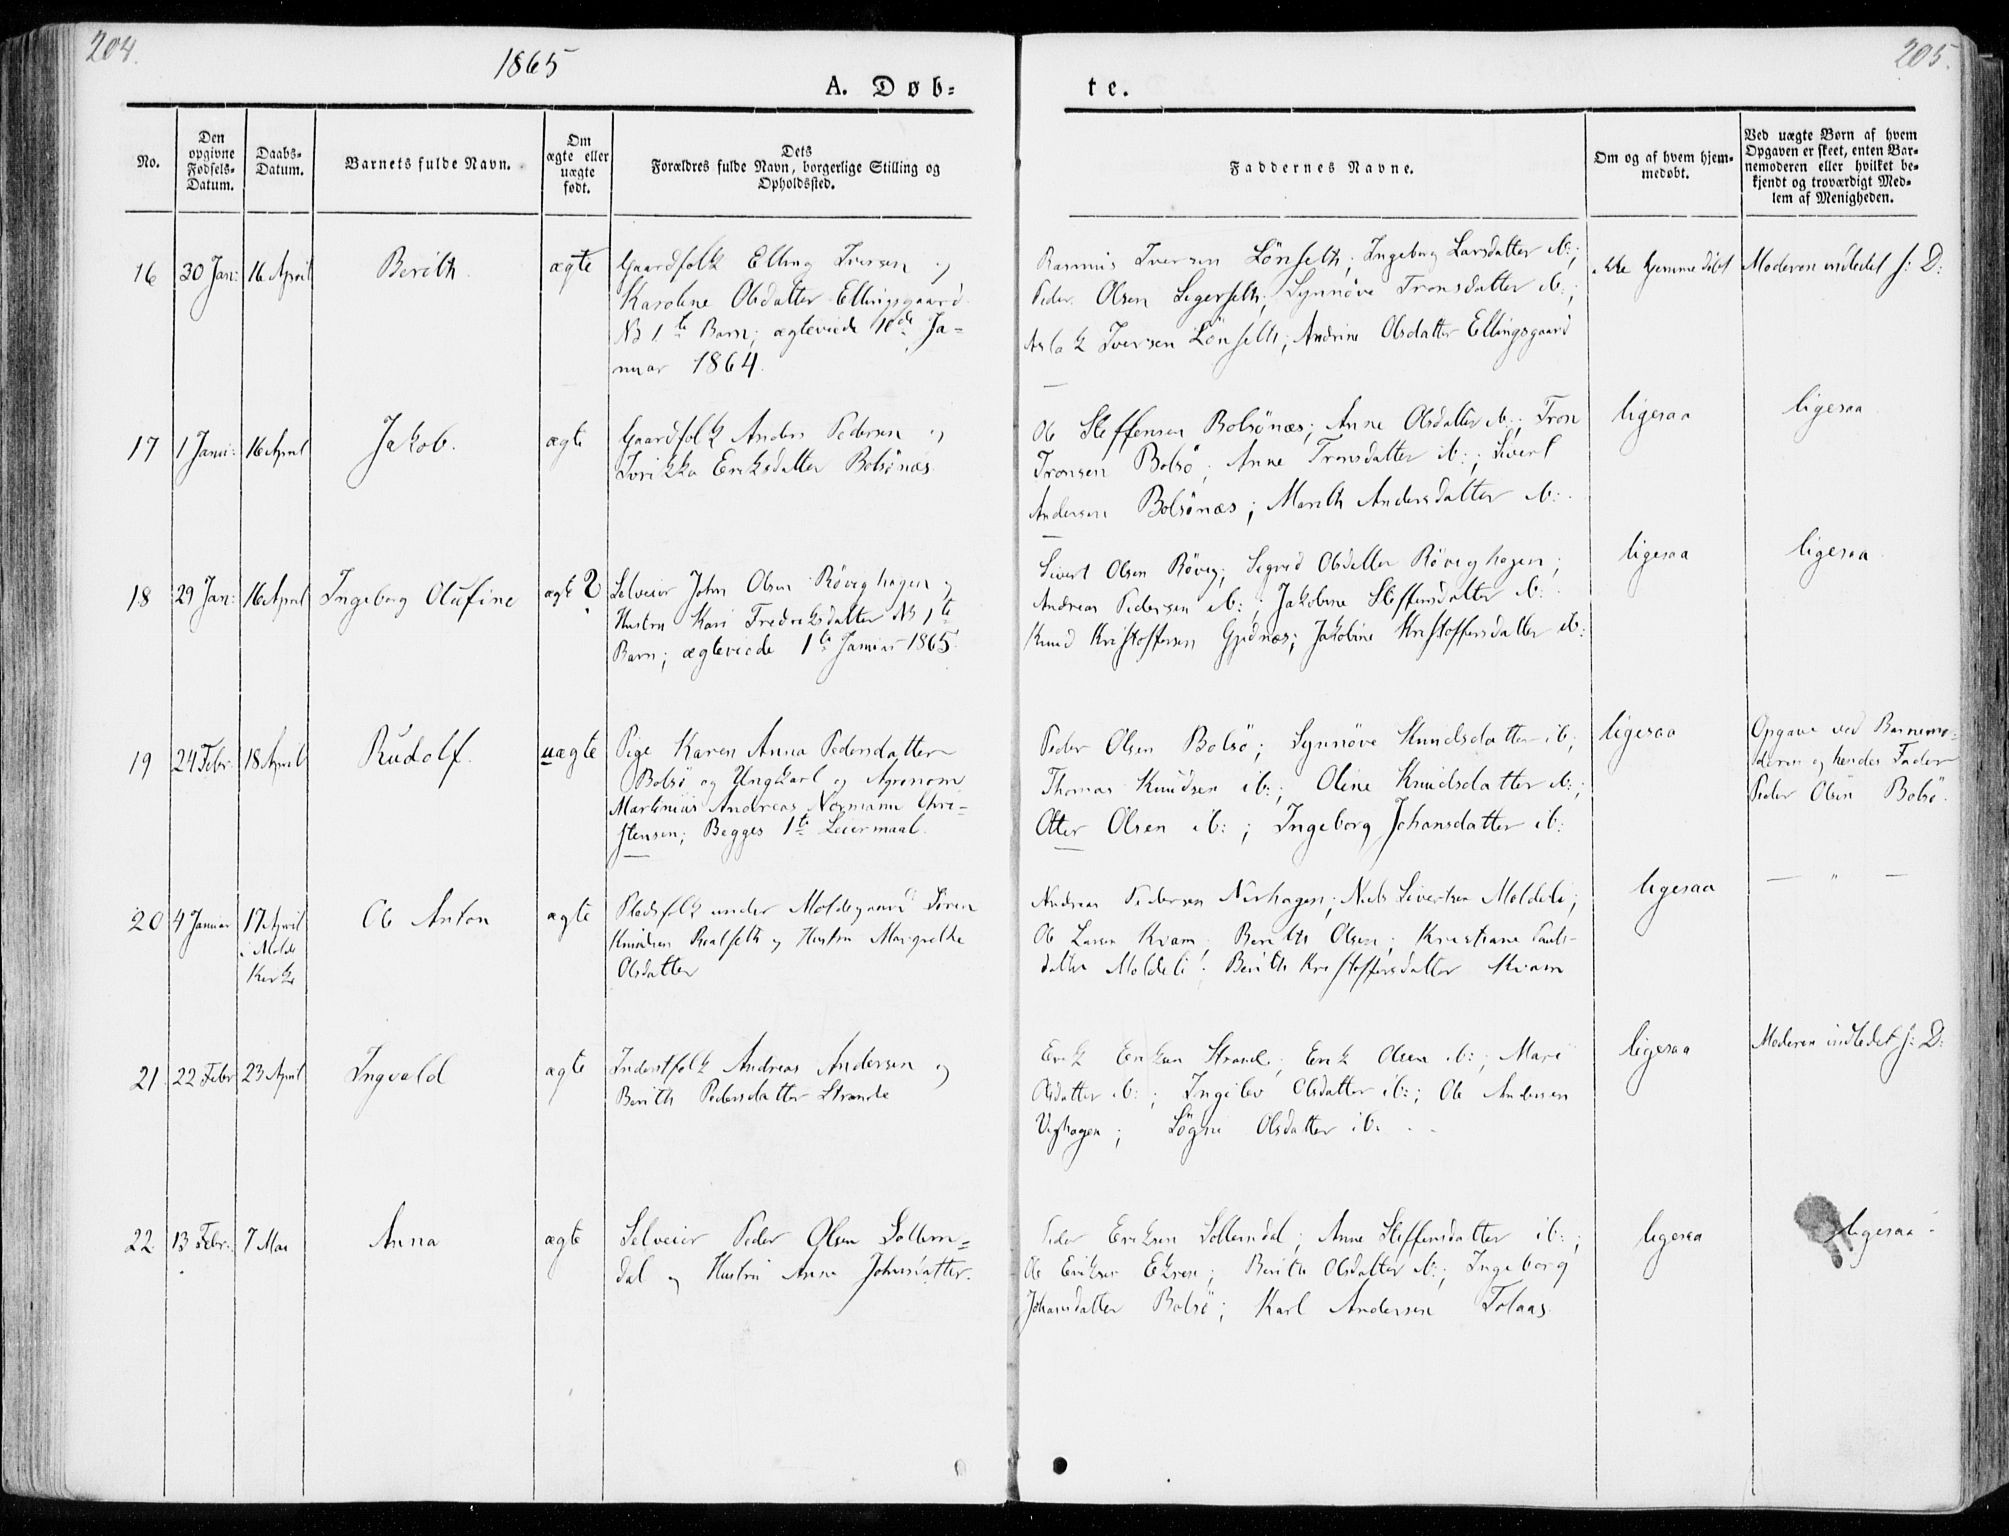 204.
1865
205.
A. Døb=
te.
No.
Den opgivne Fødsels-Datum.
Daabs-Datum.
Barnets fulde Navn.
Om ægte eller uægte født.
Dets Forældres fulde Navn, borgerlige Stilling og Opholdssted.
Faddernes Navne.
Om og af hvem hjemmedøbt.
Ved uægte Børn af hvem Opgaven er skeet, enten Barnemoderen eller hvilket bekjendt og troværdigt Medlem af Menigheden.
16
30 Jan:
16 April
Berith
ægte
Gaardfolk Elling Iversen og
Karoline Olsdatter Ellingsgaard
NB 1te Barn; ægteviede 10de Ja-
nuar 1864.
Rasmus Iversen Lönseth; Ingeborg Larsdatter ib:;
Peder Olsen Legerseth; Synnöve Tronsdatter ib:;
Aslak Iversen Lönseth; Andrine Olsdatter Ellingsgaard
ikke hjemmedöbt
Moderen indledet s: D:
17
1 Janu:
16 April
Jakob.
ægte
Gaardfolk Anders Pedersen og
Eriksdatter Bolsönæs
Ole Steffensen Bolsönæs; Anne Olsdatter ib:; Tron
Tronsen Bolsö; Anne Tronsdatter ib:; Sivert
Andersen Bolsönæs; Marith Andersdatter ib:
ligesaa
ligesaa
18
29 Jan:
16 April
Ingeborg Olufine
ægte ?
Selveier John Olsen Røvighagen og
Hustru Kari Fredriksdatter NB 1te
Barn; ægteviede 1te Januar 1865.
Sivert Olsen Røvig; Sigrid Olsdatter Røvighagen;
Andreas Pedersen ib:; Jakobine Steffensdatter ib:
Knud Kristoffersen Gjidnæs; Jakobine Kristoffersdatter ib:
ligesaa
ligesaa
19
24 Febr.
18 April
Rudolf.
uægte
Pige Karen Anna Pedersdatter
Bolsö og Ungkarl og Agronom
Martinius Andreas Normann Chri-
stensen; Begges 1te Leiermaal.
Peder Olsen Bolsö; Synnöve Knudsdatter ib:;
Thomas Knudsen ib:; Oline Knudsdatter ib:;
Otter Olsen ib:; Ingeborg Johansdatter ib:
ligesaa
Opgave ved Barnemo-
deren og hendes Fader
Peder Olsen Bolsö.
20
4 Januar
17 April
i Molde
Kirke
Ole Anton
ægte
Pladsfolk under Moldegaard Sören
Knudsen Realseth og Hustru Margrethe
Olsdatter
Andreas Pedersen Nerhagen; Niels Sivertsen Moldeli;
Ole Larsen Kvam; Berith Olsen; Kristiane Pauls-
datter Moldeli; Berith Kristoffersdatter Kvam
ligesaa
— " —
21
22 Febr
23 April
Ingvald
ægte
Inderstfolk Andreas Andersen og
Berith Pedersdatter Strande
Erik Eriksen Strande; Erik Olsen ib:; Mari
Olsdatter ib:; Ingilev Olsdatter ib:; Ole Andersen
Vighagen; Olsdatter ib:
ligesaa
Moderen indledet s: D:
22
13 Febr.
7 Mai
Anna
ægte
Selveier Peder Olsen Sollem=
dal og Hustru Anne Johnsdatter.
Peder Eriksen Sollemdal; Anne Steffensdatter ib:;
Ole Eriksen Ekren; Berith Olsdatter ib:; Ingeborg
Johansdatter Bolsö; Karl Andersen Tolaas.
ligesaa
ligesaa